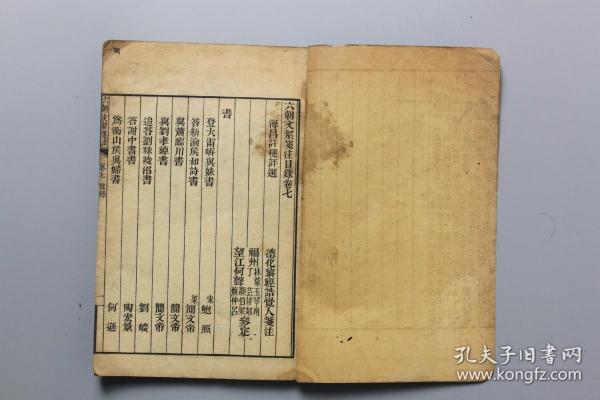 六朝文絜箋注目錄卷七
海昌許槤評選
德化黎經誥覺人箋注
福州 林葦玉琴南
書
登大雷岸與妹書 宋 鮑照
答新渝侯和詩書 梁 簡文帝
與蕭臨川書 簡文帝
與劉孝綽書 簡文帝
追答劉秣陵沼書 劉峻
答謝中書書 陶宏景
為衡山侯與婦書 何遜
六朝文絜箋注 卷七 目錄
孔夫子旧书网
www.kongfz.com